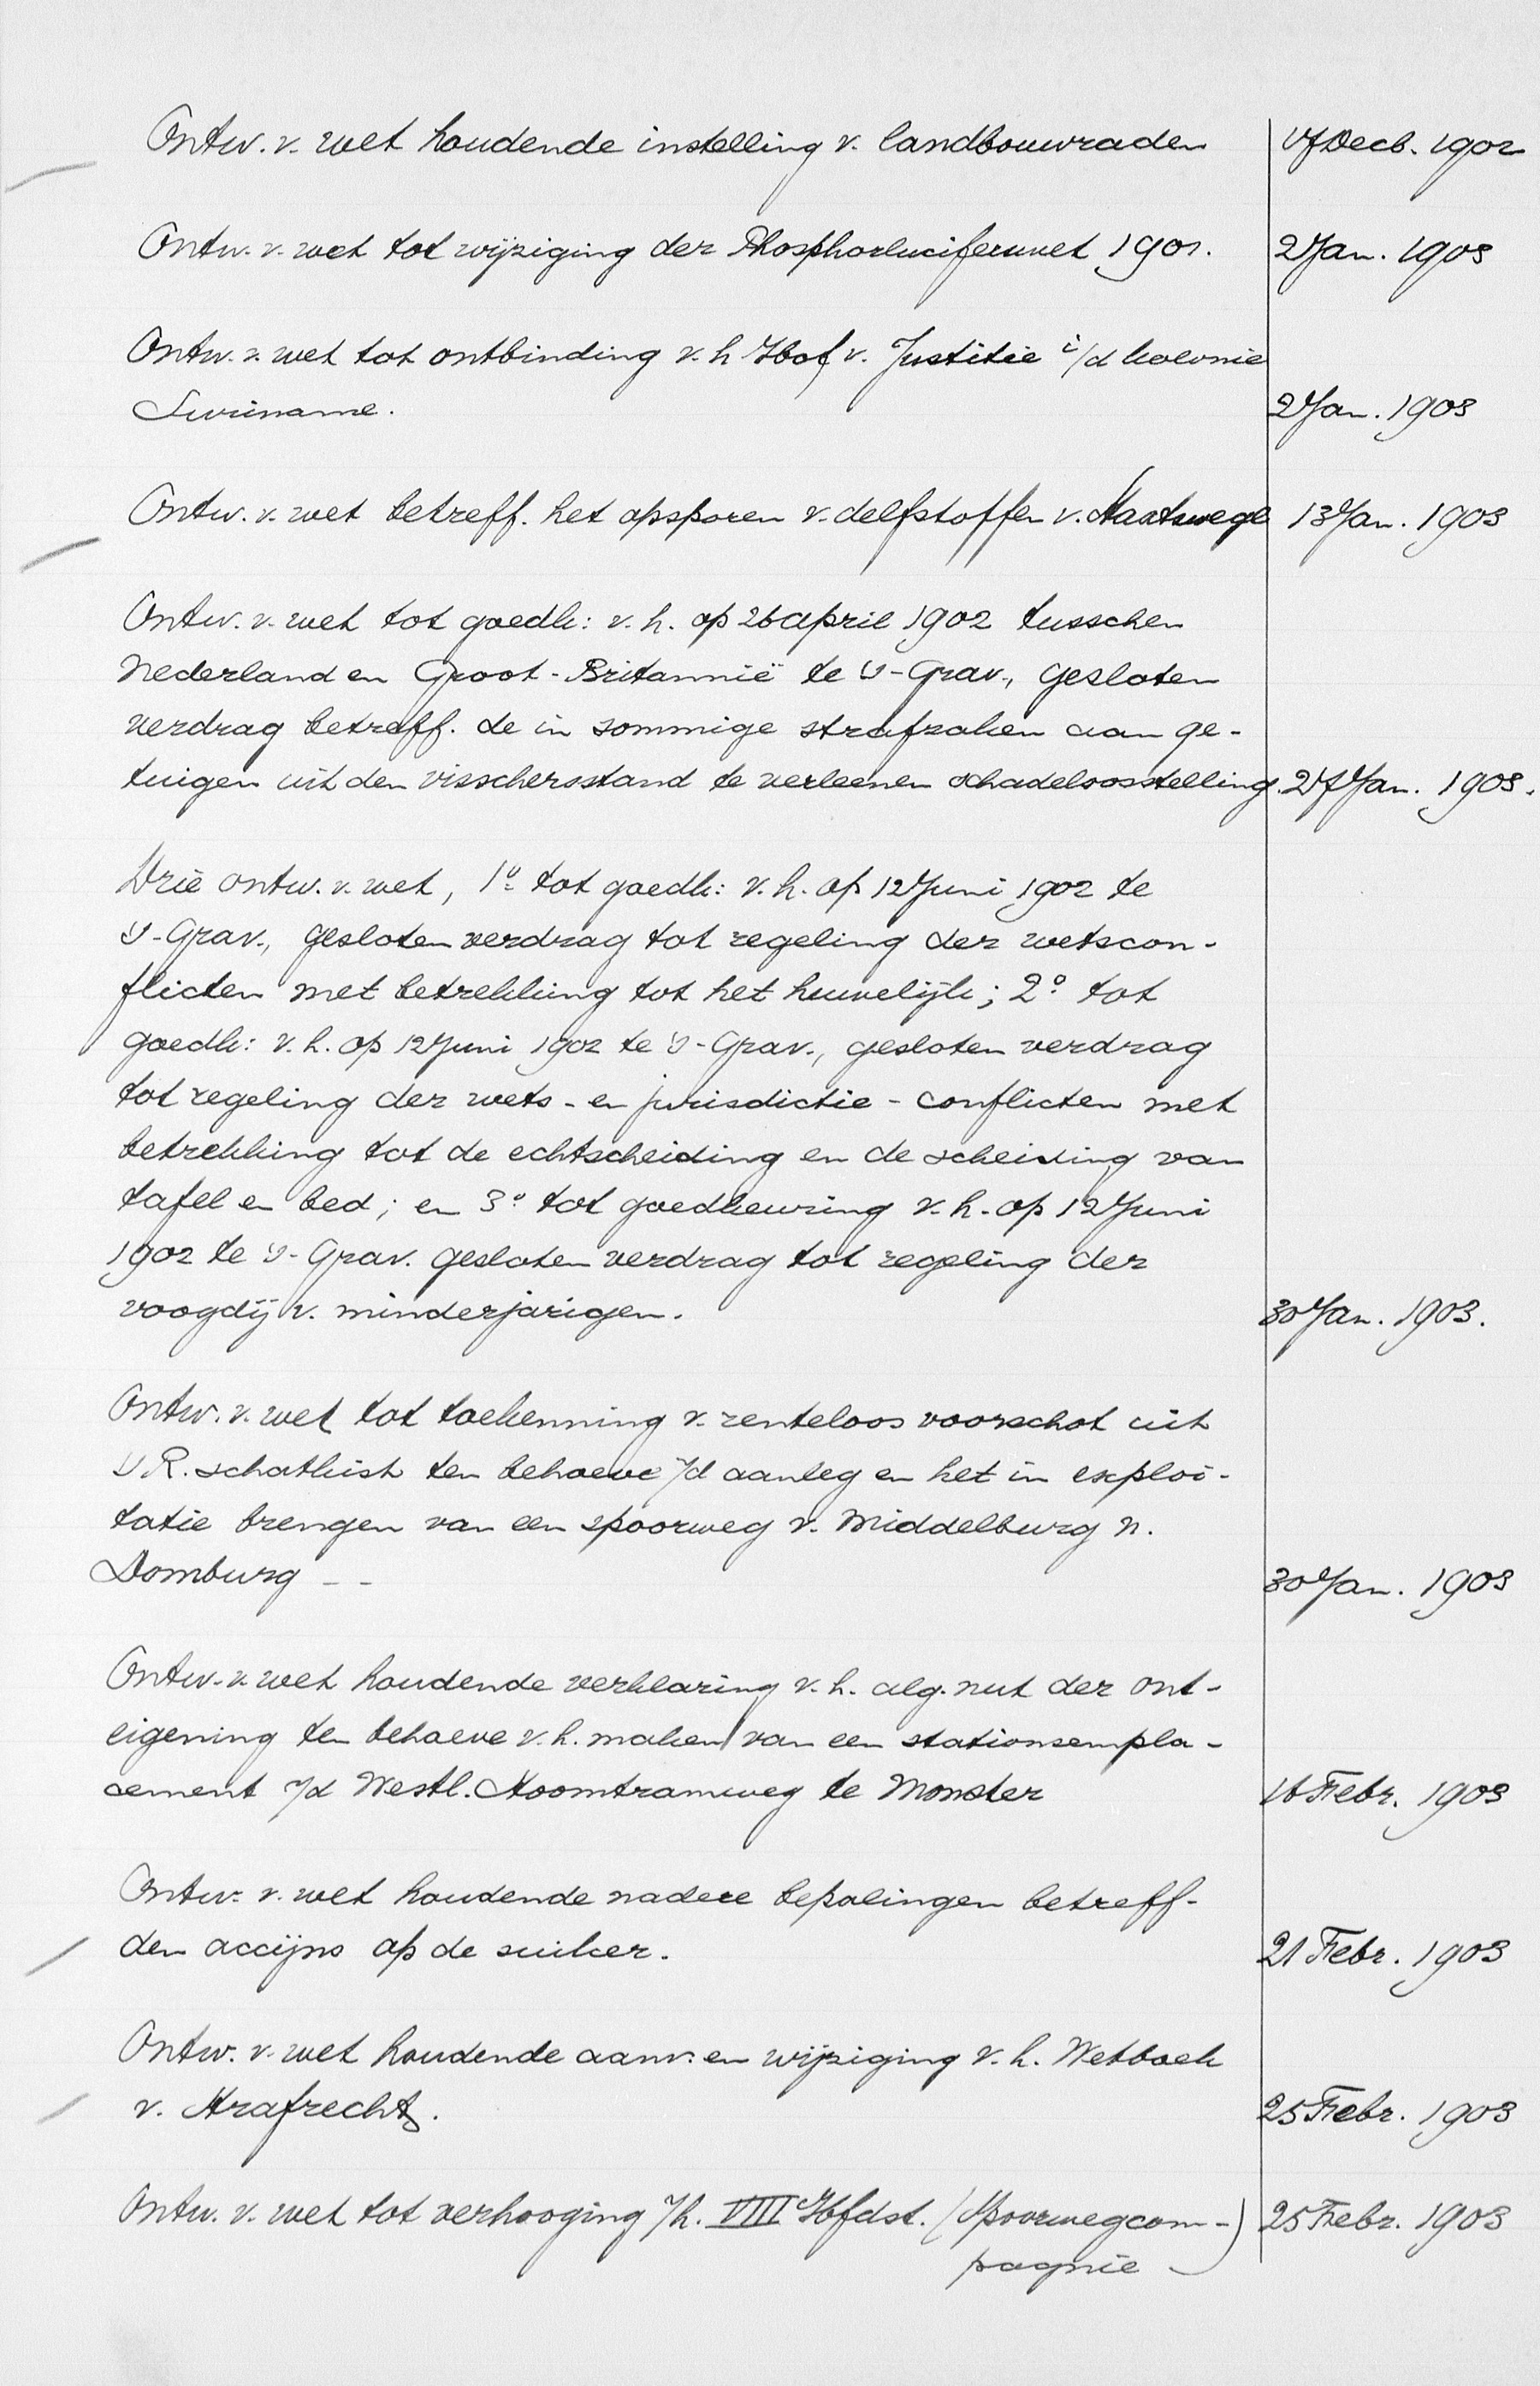 Ontw. v. wet houdende instelling v. landbouwraden 17 Decb. 1902
Ontw. v. wet tot wijziging der Phosphorluciferswet 1901. 2 Jan. 1903
Ontw. v. wet tot ontbinding v. h Hof v. Justitie i/d kolonie
Suriname. 2 Jan. 1903
Ontw. v. wet betreff. het opsporen v. delfstoffen v. Staatswege 13 Jan. 1903
Ontw. v. wet tot goedk: v. h. op 26 april 1902 tusschen
Nederland en Groot-Britannië te 's-Grav., gesloten
verdrag betreff. de in sommige strafzaken aan ge-
tuigen uit den visschersstand te verleenen schadeloosstelling. 27 Jan. 1903.
Drie ontw. v. wet, 1º tot goedk: v. h. op 12 Juni 1902 te
's-Grav., gesloten verdrag tot regeling der wetscon-
flicten met betrekking tot het huwelijk; 2º tot
goedk: v. h. op 12 Juni 1902 te 's-Grav., gesloten verdrag
tot regeling der wets- en jurisdictie-conflicten met
betrekking tot de echtscheiding en de scheiding van
tafel en bed; en 3º tot goedkeuring v. h. op 12 Juni
1902 te 's-Grav. gesloten verdrag tot regeling der
voogdij v. minderjarigen. 30 Jan. 1903.
Ontw. v. wet tot toekenning v. renteloos voorschot uit
's R. schatkist ten behoeve v/d aanleg en het in exploi-
tatie brengen van een spoorweg v. Middelburg n.
Domburg -- 30 Jan. 1903
Ontw. v. wet houdende verklaring v. h. alg. nut der ont-
eigening ten behoeve v. h. maken van een stationsempla-
cement v/d Westl. Stoomtramweg te Monster 16 Febr. 1903
Ontw. v. wet houdende nadere bepalingen betreff.
den accijns op de suiker. 21 Febr. 1903
Ontw. v. wet houdende aanv. en wijziging v. h. Wetboek
v. Strafrecht. 25 Febr. 1903
Ontw. v. wet tot verhooging v/h. VIII Hfdst. (Spoorwegcom-) 25 Febr. 1903
pagnie